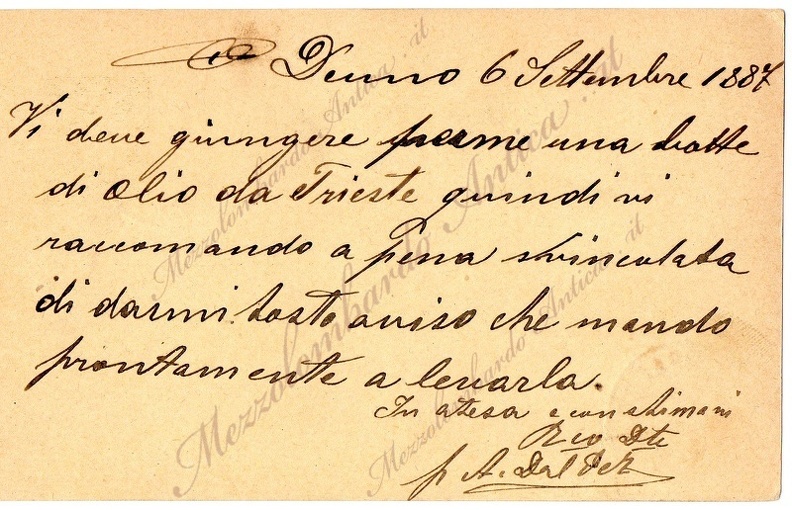 Denno 6 Settembre 1887
Vi deve giungere per me una botte
di Olio da Trieste quindi vi
raccomando a pena svincolata
di darmi tosto aviso che mando
prontamente a levarla.
In atesa e con stimavi
p A. Dal Pez
Mezzolombardo Antica.it
Mezzolombardo Antica.it
Mezzolombardo Antica.it